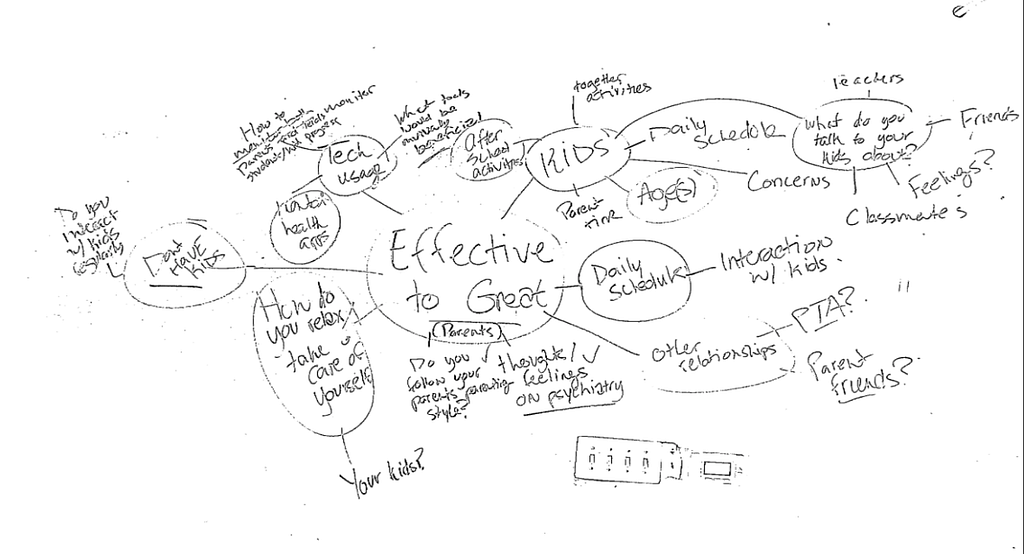 Teachers
together
activities
How to
What tools
would be
mutually
beneficial
After
school
activities
KIDS
Daily
Schedule
What do you
talk to your
kids about?
Friends
Feelings?
Classmates
Concerns
Age(s)
Parent
time
Tech
usage
mental
health
apps
Do you
interact
w/ kids
regularly
Don't
HAVE
KIDS
Effective
to Great
Parents
Daily
Schedule
Interaction
w/ kids
How do
you relax
take
care of
yourself
Your kids?
Do you
follow your
parents parenting
style?
thoughts/
feelings
on psychiatry
Other
relationships
PTA?
Parent
friends?